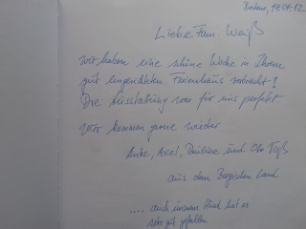 14.04.12
Liebe Fam. Weiß
wir haben eine schöne Woche in Ihrem
gut eingerichteten Ferienhaus verbracht!
Die Ausstattung war für uns perfekt
Wir kommen gerne wieder
Anke, Axel, und
aus dem Bergischen Land
.... auch unserem Hund hat es
sehr gut gefallen